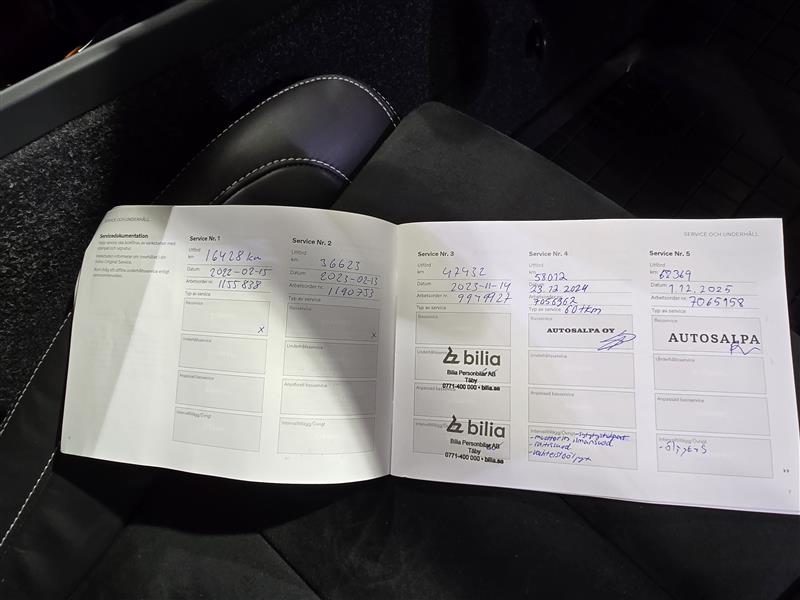 SERVICE OCH UNDERHÅLL
Servicedokumentation
Service Nr. 1
Utförd
km: 16428 km
Datum: 2022-02-15
Arbetsorder nr. 1155838
Typ av service
Basservice
x
Underhållsservice
Anpassad basservice
Intervalltillägg/Övrigt
Service Nr. 2
Utförd
km: 36623
Datum: 2023-02-13
Arbetsorder nr. 1190753
Typ av service
Basservice
x
Underhållsservice
Anpassad basservice
Intervalltillägg/Övrigt
SERVICE OCH UNDERHÅLL
Service Nr. 3
Utförd
km: 47432
Datum: 2023-11-14
Arbetsorder nr.
Typ av service
Basservice
Underhållsservice
bilia
Bilia Personbilar AB
Täby
0771-400 000 • bilia.se
Anpassad basservice
Intervalltillägg/Övrigt
bilia
Bilia Personbilar AB
Täby
0771-400 000 • bilia.se
Service Nr. 4
Utförd
km: 58012
Datum: 23.12.2024
Arbetsorder nr. 7056362
Typ av service 60tkm
Basservice
AUTOSALPA OY
Underhållsservice
Anpassad basservice
Intervalltillägg/Övrigt -sytytystulpat
-moottorin ilmansuod
-raitissuod
-vaihteistoöljyt
Service Nr. 5
Utförd
km: 68369
Datum: 1.12.2025
Arbetsorder nr. 7065158
Typ av service
Basservice
AUTOSALPA
Underhållsservice
Anpassad basservice
Intervalltillägg/Övrigt
7